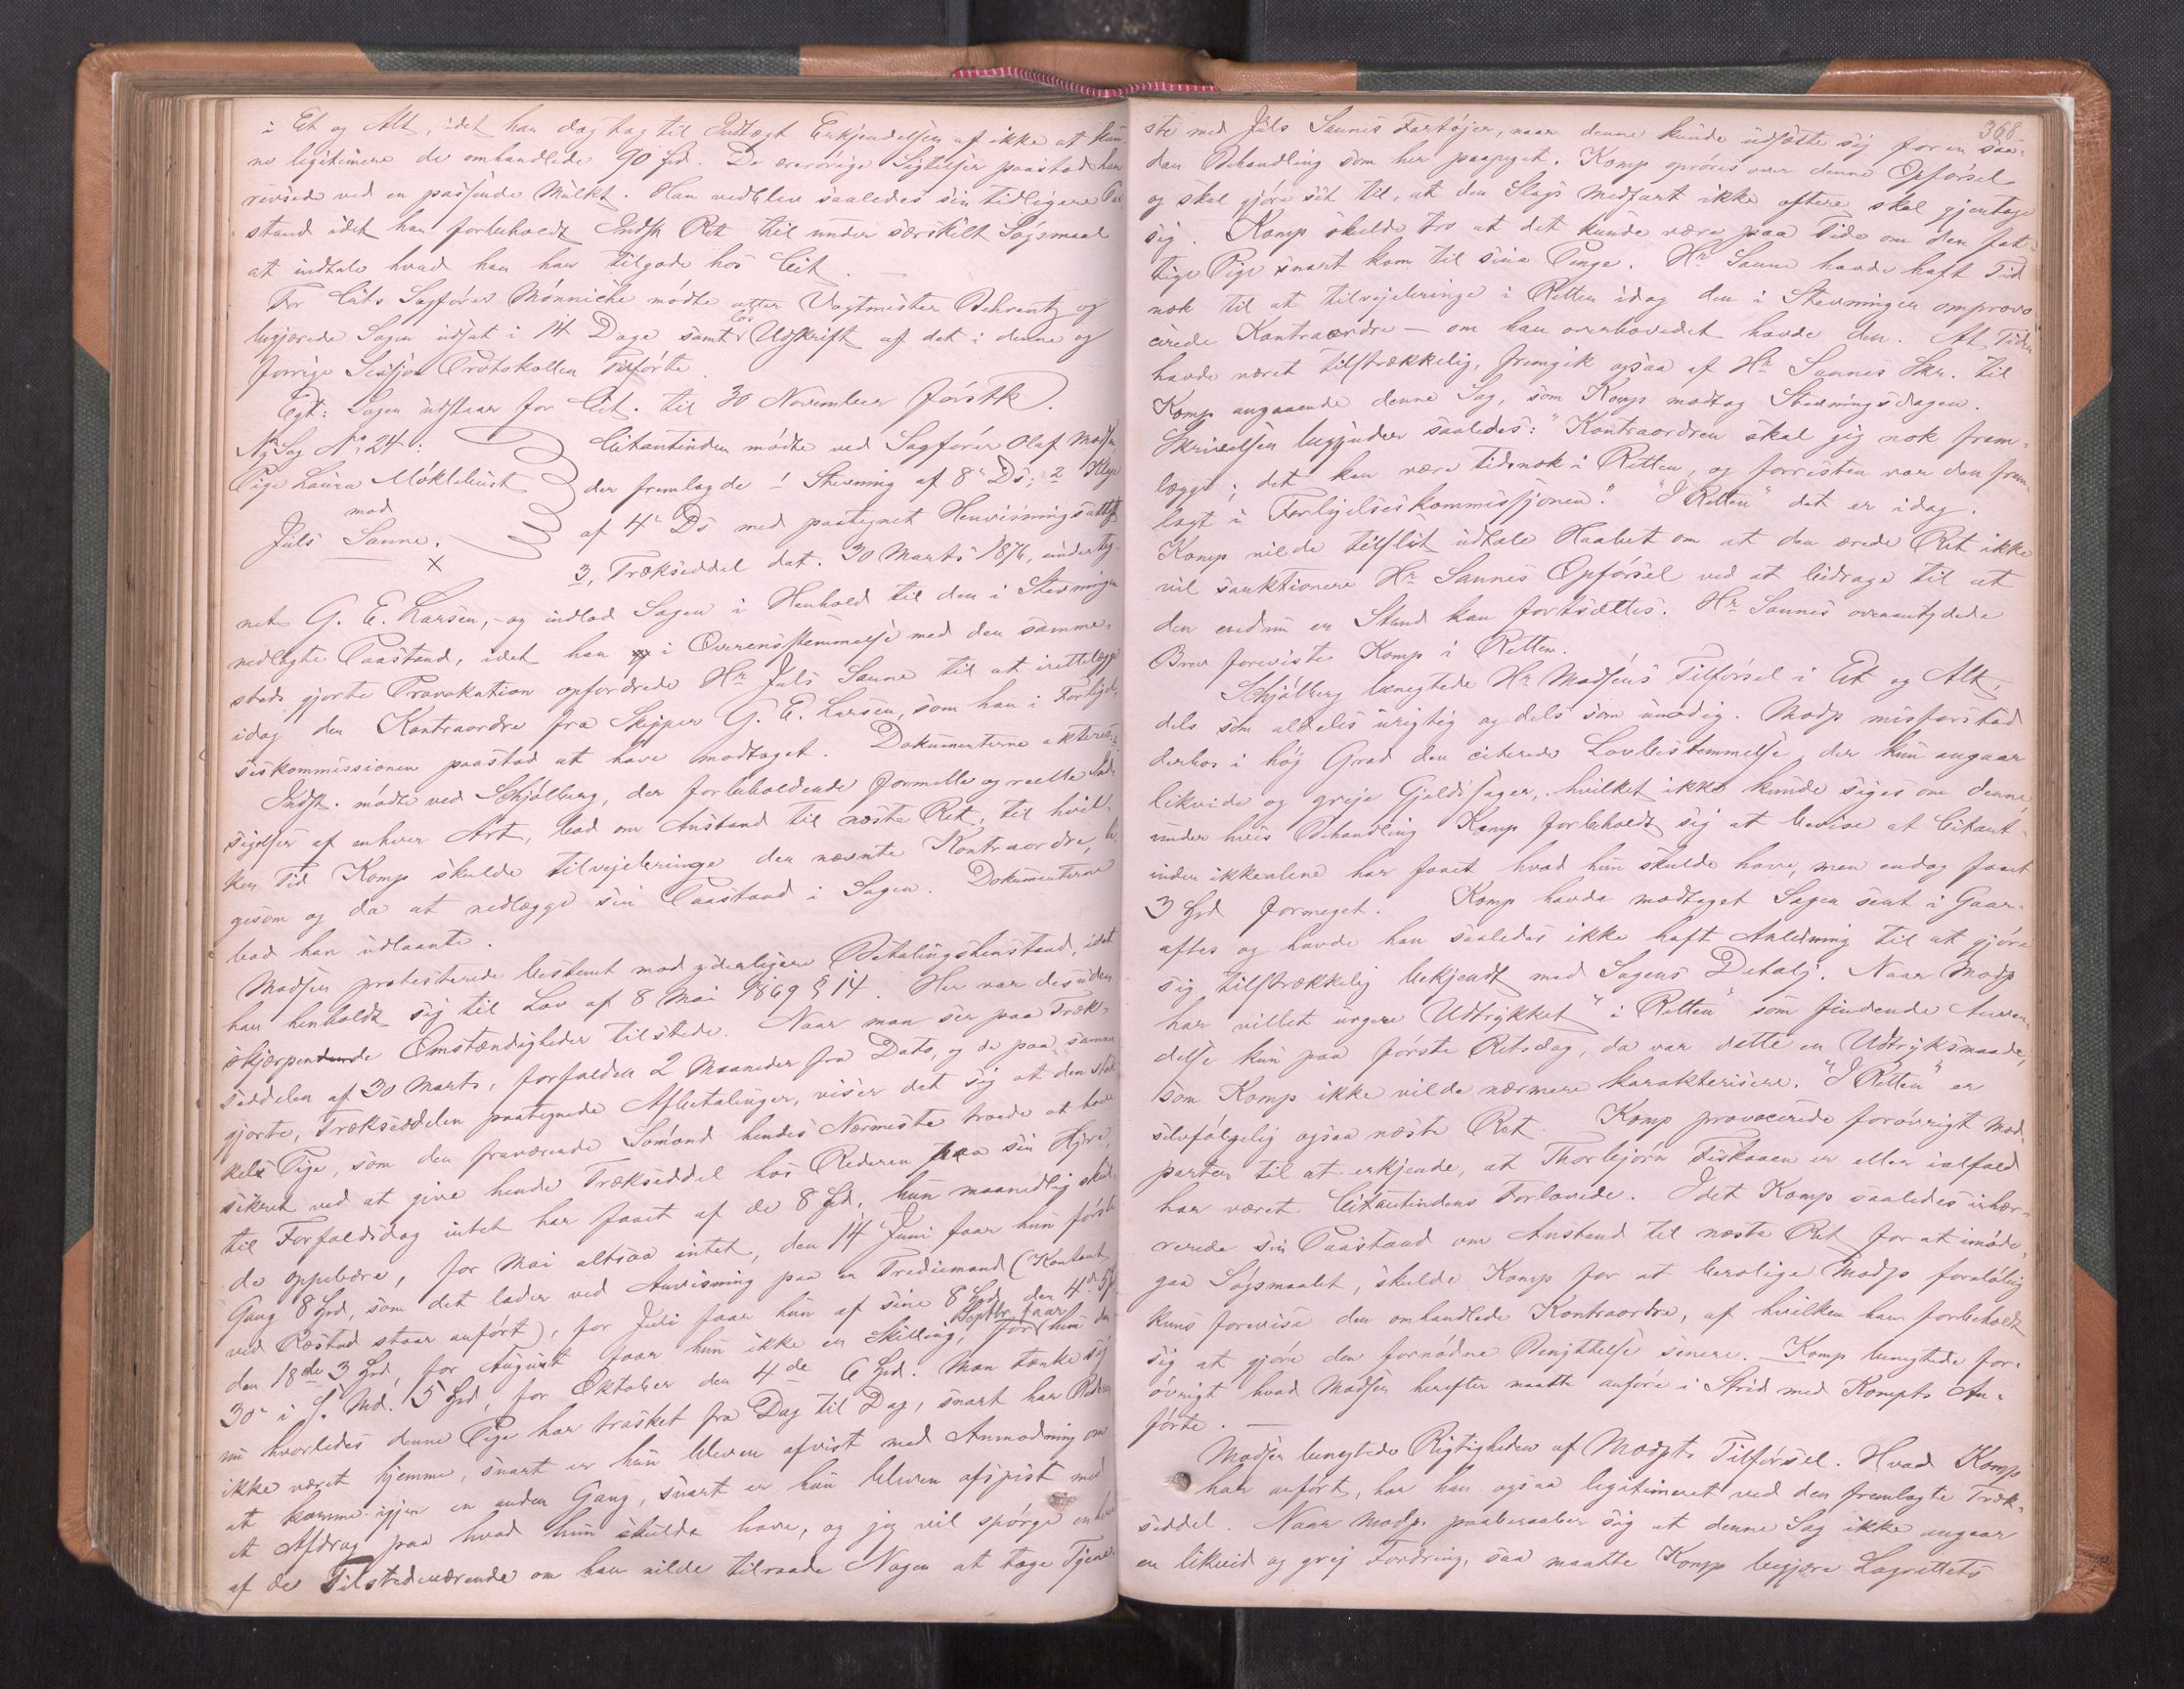 i Et og Alt, idet han dog tog til Indtægt Erkjendelsen af ikke at kun-
ne legitimere de omhandlede 90 Spd. De øvrige Sigtelser paastod han
revsede ved en passende Mulkt. Han vedblev saaledes sin tidligere Paa-
stand idet han forbeholdt Indst. Ret til under særskilt Søgsmaal
at indtale hvad han har tilgode hos Cit.
For Cits Sagfører Mønniche mødte atter Vagtmester Schrantz og
begjærede Sagen udsat i 14 Dage samt Udskrift af det i denne og
forrige Session Protokollen Tilførte.
Egt: Sagen udstaar for Cit. til 30 November førstk.
Ny Sag No 24:
Pige Laura Møklebust
mod
Juls Sanne.
Citantinden mødte ved Sagfører Olaf Madsen
der fremlagde 1 Stevning af 8de Ds; 2 Klage
af 4de Ds med paategnet Henvisningsattest
3, Trækseddel dat. 30 Marts 1876, underteg-
net G. E. Larsen, og indlod Sagen i Henhold til den i Stevningen
nedlagte Paastand, idet han i Overensstemmelse med den samme-
steds gjorte Provokation opfordrede Hr Juls Sanne til at irettelægge
idag den Kontraordre fra Skipper G. E. Larsen, som han i Forligel-
seskommissionen paastod at have modtaget. Dokumenterne akteres.
Indst. mødte ved Schjølberg, der forbeholdende formelle og reelle Ind-
sigelser af enhver Art, bad om Anstand til næste Ret, til hvil-
ken Tid Komp skulde tilvejebringe den nævnte Kontraordre, li-
gesom og da at nedlægge sin Paastand i Sagen. Dokumenterne
bad han udlaante.
Madsen protesterede bestemt mod yderligere Betalingshenstand, idet
han henholdt sig til Lov af 8 Mai 1869 § 14. Her var desuden
skjærpende Omstændigheder tilstede. Naar man ser paa Træk-
seddelen af 30 Marts, forfalden 2 Maaneder fra Dato, og de paa samme
gjorte, Trækseddelen paategnede Afbetalinger, viser det sig at den stak-
kels Pige, som den fraværende Sømand hendes Nærmeste troede at have
sikret ved at give hende Trækseddel hos Rederen paa sin Hyre,
til Forfaldsdag intet har faaet af de 8 Spd, hun maanedlig skul-
de oppebære, for Mai altsaa intet, den 14de Juni faar hun første
Gang 8 Spd, som det lader ved Anvisning paa en Trediemand (Kontant
ved Ræstad staar anført), for Juli faar hun af sine 8 Spd den 4de 5
den 18de 3 Spd, for August faar hun ikke en Skilling, for Septbr faar hun den
30te i s. Md. 5 Spd, for Oktober den 4de 6 Spd. Man tænke sig
nu hvorledes denne Pige har trasket fra Dag til Dag, snart har Rederen
ikke været hjemme, snart er hun bleven afvist med Anmodning om
at komme igjen en anden Gang, snart er hun bleven afspist med
et Afdrag paa hvad hun skulde have, og jeg vil spørge enhver
af de Tilstedeværende om han vilde tilraade Nogen at tage Tjene-
368.
ste med Juls Sannes Fartøjer, naar denne kunde udsætte sig for en saa-
dan Behandling som her paapeget. Komp oprøres over denne Opførsel
og skal gjøre sit til, at den Slags Medfart ikke oftere skal gjentage
sig. Komp skulde tro at det kunde være paa Tide om den fat-
tige Pige snart kom til sine Penge. Hr Sanne havde haft Tid
nok til at tilvejebringe i Retten idag den i Stevningen omprovo-
cerede Kontraordre – om han overhovedet havde den. At Tiden
havde været tilstrækkelig, fremgik ogsaa af Hr Sannes Skr. til
Komp angaaende denne Sag, som Komp modtog Stevningsdagen.
Skrivelsen begynder saaledes: "Kontraordren skal jeg nok frem-
lægge; det kan være tidsnok i Retten, og forresten var den frem-
lagt i Forligelseskommissjonen." "I Retten" det er idag.
Komp vilde tilslut udtale Haabet om at den ærede Ret ikke
vil sanktionere Hr Sannes Opførsel ved at bidrage til at
den endnu en Stund kan fortsættes. Hr Sannes ovenantydede
Brev foreviste Komp i Retten.
Schjølberg benegtede Hr Madsens Tilførsel i Et og Alt,
dels som aldeles urigtig og dels som unødig. Modp misforstod
derhos i høj Grad den citerede Lovbestemmelse, der kun angaar
likvide og greje Gjeldssager, hvilket ikke kunde siges om denne,
under hvis Behandling Komp forbeholdt sig at bevise at Citant-
inden ikkealene har faaet hvad hun skulde have, men endog faaet
3 Spd formeget. Komp havde modtaget Sagen sent i Gaar-
aftes og havde han saaledes ikke haft Anledning til at gjøre
sig tilstrækkelig bekjendt med Sagens Detalj. Naar Modp
har villet urgere Udtrykket "i Retten" som findende Anven-
delse kun paa første Retsdag, da var dette en Udtryksmaade,
som Komp ikke vilde nærmere karakterisere. "I Retten" er
selvfølgelig ogsaa næste Ret. Komp provocerede forøvrigt Mod-
parten til at erkjende, at Thorbjørn Fiskaaen er eller ialfald
har været Citantindens Forlovede. Idet Komp saaledes inhæ-
rerede sin Paastand om Anstand til næste Ret for at imøde-
gaa Søgsmaalet, skulde Komp for at berolige Modp foreløbig
kuns forevise den omhandlede Kontraordre, af hvilken han forbeholdt
sig at gjøre den fornødne Benyttelse senere. – Komp benegtede for-
øvrigt hvad Madsen herefter maatte anføre i Strid med Kompts An-
førte. –
Madsen benegtede Rigtigheden af Modpts Tilførsel. Hvad Komp
har anført, har han ogsaa legitimeret ved den fremlagte Træk-
seddel. Naar Modp. paaberaaber sig at denne Sag ikke angaar
en likvid og grej Fordring, saa maatte Komp begjære Lagrettets